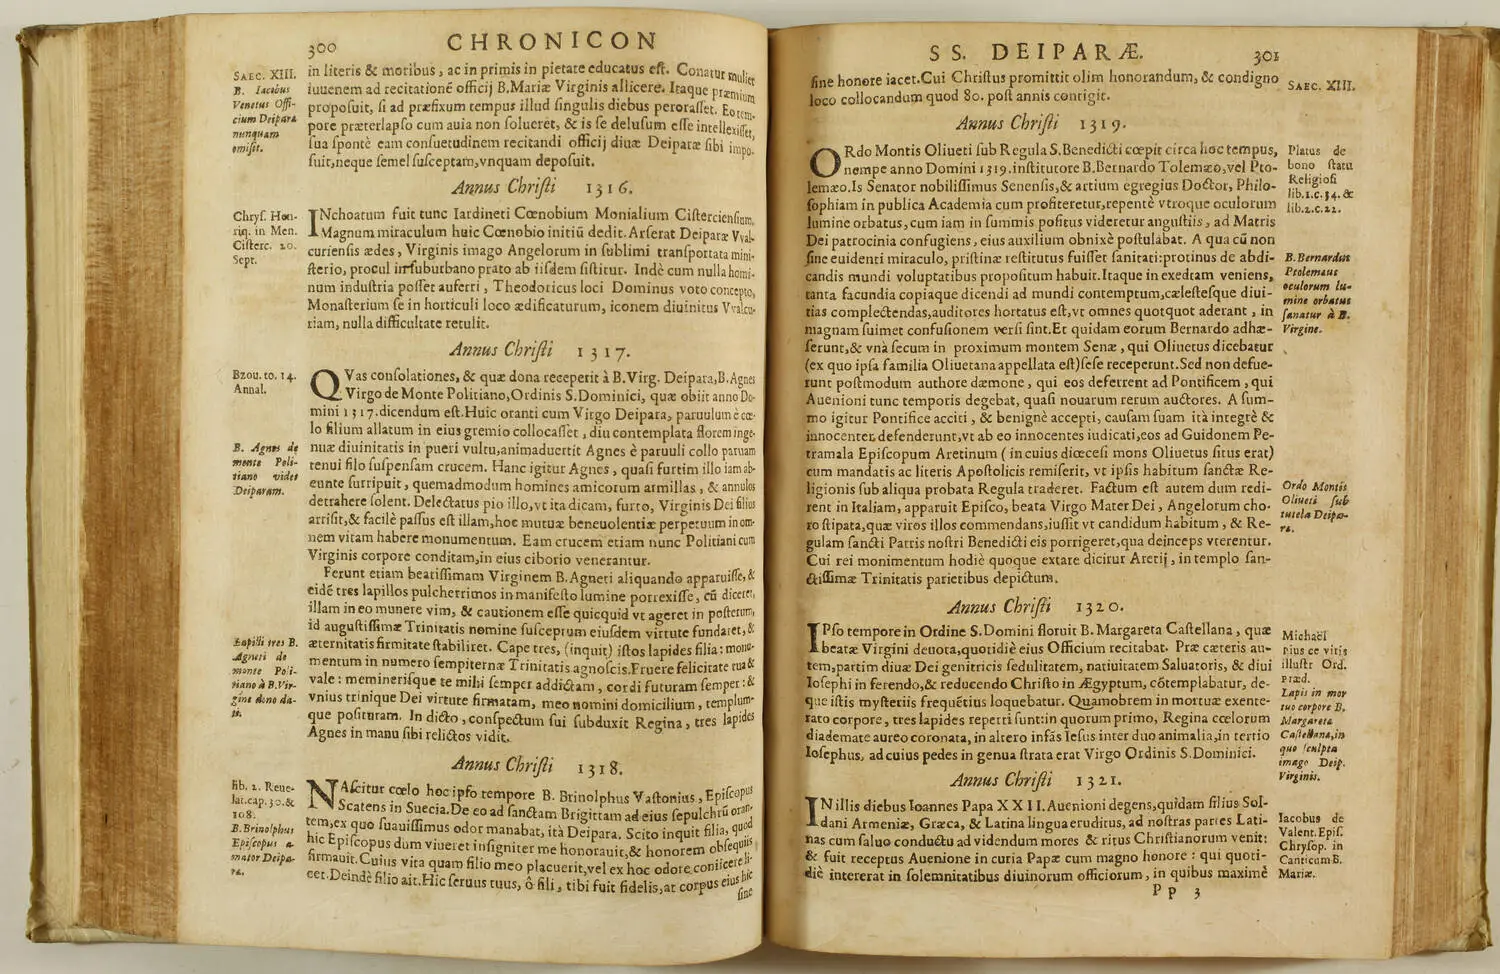 300
CHRONICON
SAEC. XIII.
B. Iacobus
Venetus Offi-
cium Deiparæ
nunquam
omisit.
in literis & moribus, ac in primis in pietate educatus eſt. Conatur mulier
iuuenem ad recitationẽ officij B.Mariæ Virginis allicere. Itaque præmium
propoſuit, ſi ad præfixum tempus illud ſingulis diebus peroraſſet. Eo tem-
pore præterlapſo cum auia non ſolueret, & is ſe deluſum eſſe intellexiſſet,
ſua ſpontè eam conſuetudinem recitandi officij diuæ Deiparæ ſibi impo-
ſuit,neque ſemel ſuſceptam,vnquam depoſuit.
Annus Chriſti 1316.
Chryſ. Hen-
riq. in Men.
Ciſterc. 20.
Sept.
INchoatum fuit tunc Iardineti Cœnobium Monialium Ciſtercienſium,
Magnum miraculum huic Cœnobio initiũ dedit. Arſerat Deiparæ Vval-
curienſis ædes, Virginis imago Angelorum in ſublimi tranſportata mini-
ſterio, procul in ſuburbano prato ab iiſdem ſiſtitur. Indè cum nulla homi-
num induſtria poſſet auferri, Theodoricus loci Dominus voto concepto,
Monaſterium ſe in horticuli loco ædificaturum, iconem diuinitus Vvalcu-
riam, nulla difficultate retulit.
Annus Chriſti 1317.
Bzou. to. 14.
Annal.
B. Agnes de
monte Poli-
tiano videt
Deiparam.
QVas conſolationes, & quæ dona receperit à B.Virg. Deipara,B.Agnes
Virgo de Monte Politiano,Ordinis S.Dominici, quæ obiit anno Do-
mini 1317.dicendum eſt.Huic oranti cum Virgo Deipara, paruulum è cœ-
lo filium allatum in eius gremio collocaſſet, diu contemplata florem inge-
nuæ diuinitatis in pueri vultu,animaduertit Agnes è paruuli collo paruam
tenui filo ſuſpenſam crucem. Hanc igitur Agnes, quaſi furtim illo iam ab-
eunte ſurripuit, quemadmodum homines amicorum armillas, & annulos
detrahere ſolent. Delectatus pio illo,vt ita dicam, furto, Virginis Dei filius
arriſit,& facilè paſſus eſt illam,hoc mutuæ beneuolentiæ perpetuum in om-
nem vitam habere monumentum. Eam crucem etiam nunc Politiani cum
Virginis corpore conditam,in eius ciborio venerantur.
Lapilli tres B.
Agneti de
monte Poli-
tiano à B.Vir-
gine dono da-
ti.
Ferunt etiam beatiſſimam Virginem B.Agneti aliquando apparuiſſe,&
eidẽ tres lapillos pulcherrimos in manifeſto lumine porrexiſſe, cũ diceret,
illam in eo munere vim, & cautionem eſſe quicquid vt ageret in poſterum,
id auguſtiſſimæ Trinitatis nomine ſuſceptum eiuſdem virtute fundaret,&
æternitatis firmitate ſtabiliret. Cape tres, (inquit) iſtos lapides filia: monu-
mentum in numero ſempiternæ Trinitatis agnoſcis.Fruere felicitate tua &
vale: meminerisque te mihi ſemper addictam, cordi futuram ſemper: &
vnius trinique Dei virtute firmatam, meo nomini domicilium, templum-
que poſituram. In dicto, conſpectum ſui ſubduxit Regina, tres lapides
Agnes in manu ſibi relictos vidit.
Annus Chriſti 1318.
lib. 2. Reue-
lat.cap.30.&
108.
B.Brinolphus
Epiſcopus a-
mator Deipa-
ræ.
NAſcitur cœlo hoc ipſo tempore B. Brinolphus Vaſtonius, Epiſcopus
Scatens in Suecia.De eo ad ſanctam Brigittam ad eius ſepulchrũ oran-
tem,ex quo ſuauiſſimus odor manabat, ità Deipara. Scito inquit filia, quod
hic Epiſcopus dum viueret inſigniter me honorauit,& honorem obſequiis
firmauit.Cuius vita quam filio meo placuerit,vel ex hoc odore coniicere li-
cet.Deindè filio ait.Hic ſeruus tuus, ô fili, tibi fuit fidelis,at corpus eius hic
ſine
SS. DEIPARÆ.
301
SAEC. XIII.
ſine honore iacet.Cui Chriſtus promittit olim honorandum, & condigno
loco collocandum quod 80. poſt annis contigit.
Annus Chriſti 1319.
Platus de
bono ſtatu
Religioſi
lib.1.c.34.&
lib.2.c.22.
B.Bernardus
Ptolemæus
oculorum lu-
mine orbatus
ſanatur à B.
Virgine.
Ordo Montis
Oliueti ſub
tutela Deipa-
ræ.
ORdo Montis Oliueti ſub Regula S.Benedicti cœpit circa hoc tempus,
nempe anno Domini 1319.inſtitutore B.Bernardo Tolemæo,vel Pto-
lemæo.Is Senator nobiliſſimus Senenſis,& artium egregius Doctor, Philo-
ſophiam in publica Academia cum profiteretur,repentè vtroque oculorum
lumine orbatus,cum iam in ſummis poſitus videretur anguſtiis, ad Matris
Dei patrocinia confugiens, eius auxilium obnixè poſtulabat. A qua cũ non
ſine euidenti miraculo, priſtinæ reſtitutus fuiſſet ſanitati:protinus de abdi-
candis mundi voluptatibus propoſitum habuit.Itaque in exedram veniens,
tanta facundia copiaque dicendi ad mundi contemptum,cæleſteſque diui-
tias complectendas,auditores hortatus eſt,vt omnes quotquot aderant, in
magnam ſuimet confuſionem verſi ſint.Et quidam eorum Bernardo adhæ-
ſerunt,& vnà ſecum in proximum montem Senæ, qui Oliuetus dicebatur
(ex quo ipſa familia Oliuetana appellata eſt)ſeſe receperunt.Sed non defue-
runt poſtmodum authore dæmone, qui eos deferrent ad Pontificem, qui
Auenioni tunc temporis degebat, quaſi nouarum rerum auctores. A ſum-
mo igitur Pontifice acciti, & benignè accepti, cauſam ſuam ità integrè &
innocenter defenderunt,vt ab eo innocentes iudicati,eos ad Guidonem Pe-
tramala Epiſcopum Aretinum (in cuius diœceſi mons Oliuetus ſitus erat)
cum mandatis ac literis Apoſtolicis remiſerit, vt ipſis habitum ſanctæ Re-
ligionis ſub aliqua probata Regula traderet. Factum eſt autem dum redi-
rent in Italiam, apparuit Epiſco, beata Virgo Mater Dei, Angelorum cho-
ro ſtipata,quæ viros illos commendans,iuſſit vt candidum habitum, & Re-
gulam ſancti Patris noſtri Benedicti eis porrigeret,qua deinceps vterentur.
Cui rei monimentum hodiè quoque extare dicitur Aretij, in templo ſan-
ctiſſimæ Trinitatis parietibus depictum.
Annus Chriſti 1320.
Michaël
Pius ce vitis
illuſtr Ord.
Præd.
Lapis in mor
tuo corpore B.
Margaretæ
Caſtellana,in
quo ſculpta
imago Deip.
Virginis.
IPſo tempore in Ordine S.Domini floruit B. Margareta Caſtellana, quæ
beatæ Virgini deuota,quotidiè eius Officium recitabat. Præ cæteris au-
tem,partim diuæ Dei genitricis ſedulitatem, natiuitatem Saluatoris, & diui
Ioſephi in ferendo,& reducendo Chriſto in Ægyptum, cõtemplabatur, de-
que iſtis myſteriis frequẽtius loquebatur. Quamobrem in mortuæ exente-
rato corpore, tres lapides reperti ſunt:in quorum primo, Regina cœlorum
diademate aureo coronata, in altero infãs Ieſus inter duo animalia,in tertio
Ioſephus, ad cuius pedes in genua ſtrata erat Virgo Ordinis S.Dominici.
Annus Chriſti 1321.
Iacobus de
Valent.Epiſ.
Chryſop. in
Canticum B.
Mariæ.
IN illis diebus Ioannes Papa XXII. Auenioni degens,quidam filius Sol-
dani Armeniæ, Græca, & Latina lingua eruditus, ad noſtras partes Lati-
nas cum ſaluo conductu ad videndum mores & ritus Chriſtianorum venit:
& fuit receptus Auenione in curia Papæ cum magno honore: qui quoti-
diè intererat in ſolemnitatibus diuinorum officiorum, in quibus maximè
Pp 3